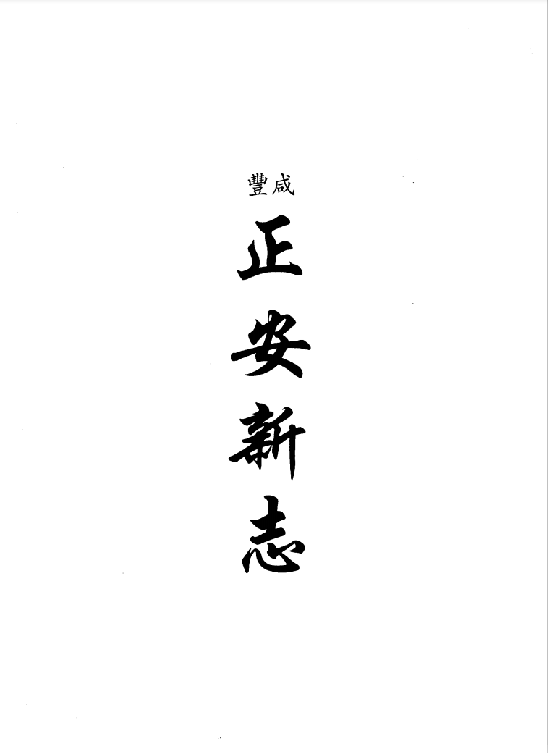 咸豐
正安新志